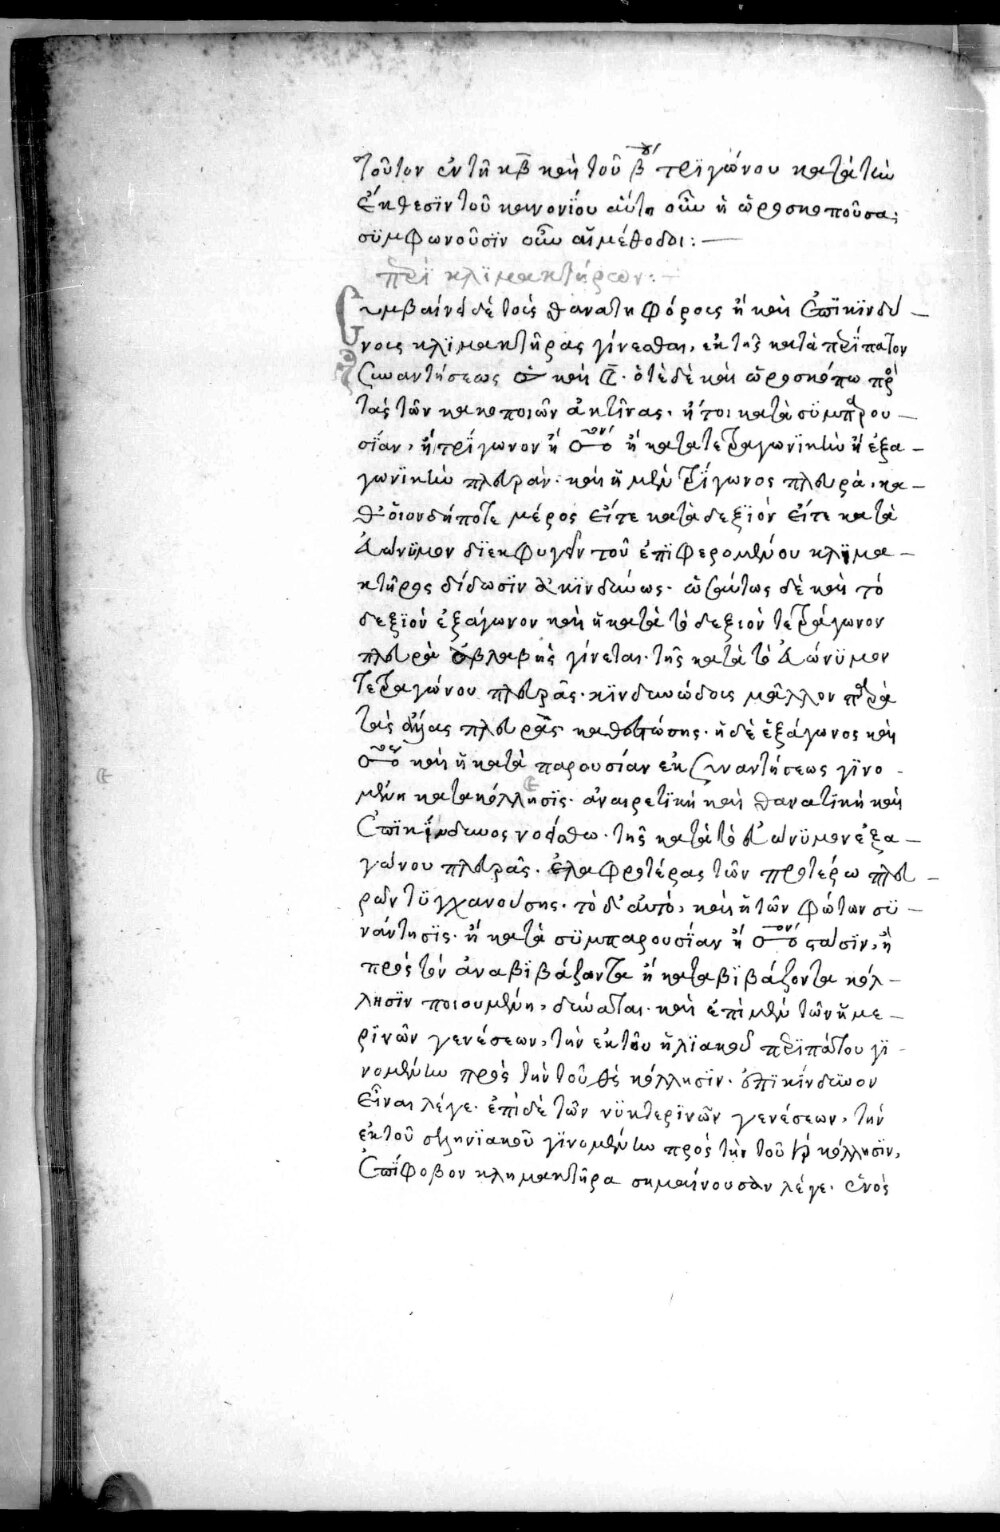 τοῦτον ἐν τῆ κβ καὶ τοῦ β τρϊγώνου κατὰ τὴν
ἔκθεσϊν τοῦ κανονίου αὕτη οὖν ἡ ὡροσκοποῦσα;
σϋμφωνοῦσϊν οὖν αἱ μέθοδοι: —
περϊ κλϊμακτήρων: +
Συμβαίνει δὲ τοῖς θανατηφόροις ἢ καὶ ἐπϊκϊνδύ –
νοις κλϊμακτῆρας γίνεσθαι, ἐκ τῆς κατὰ περΐπατον
συναντήσεως ☉ καὶ ☾. ὁτὲ δὲ καὶ ὡροσκόπω πρὸς
τὰς τῶν κακοποιῶν ἀκτῖνας. ἤτοι κατὰ σϋμπαρου –
σΐαν, ἢ τρΐγωνον ἢ ☍ ἢ κατὰ τετραγωνϊκὴν ἢ ἑξα –
γωνϊκὴν πλευράν. καὶ ἡ μὲν τρΐγωνος πλευρὰ, κα –
θ' οἱονδήποτε μέρος εἴτε κατὰ δεξϊὸν εἴτε κατὰ
εὐώνϋμον δϊεκφυγεῖν τοῦ ἐπϊφερομένου κλϊμα –
κτῆρος δίδωσϊν ἀκϊνδύνως. ὡσαύτως δὲ καὶ τὸ
δεξϊὸν ἑξάγωνον καὶ ἡ κατὰ τὸ δεξιὸν τετράγωνον
πλευρὰ ἀβλαβὴς γίνεται. τῆς κατὰ τὸ εὐώνϋμον
τετραγώνου πλευρᾶς. κϊνδυνώδους μᾶλλον παρὰ
τὰς ἄλλας πλευρὰς καθεστώσης. ἡ δὲ ἑξάγωνος καὶ
☍ καὶ ἡ κατὰ παρουσίαν ἐκ συναντήσεως γϊνο –
μένη κατακόλλησϊς. ἀναιρετϊκὴ καὶ θανατϊκὴ καὶ
ἐπϊκΐνδυνος νοείσθω. τῆς κατὰ τὸ εὐώνϋμον ἑξα –
γώνου πλευρᾶς. ἐλαφροτέρας τῶν προτέρω πλευ –
ρῶν τϋγχανούσης. τὸ δ' αὐτὸ, καὶ ἡ τῶν φώτων σϋ –
νάντησϊς. ἢ κατὰ σϋμπαρουσΐαν ἢ ☍ στάσϊν, ἢ
πρὸς τὸν ἀναβϊβάζοντα ἢ καταβϊβάζοντα κόλ –
λησϊν ποιουμένη, δύναται. καὶ ἐπὶ μὲν τῶν ἡμε –
ρϊνῶν γενέσεων, τὴν ἐκ τοῦ ἡλϊακοῦ περϊπάτου γϊ –
νομένην πρὸς τὴν τοῦ κόλλησϊν. ἐπϊκίνδϋνον
εἶναι λέγε. ἐπὶ δὲ τῶν νϋκτερϊνῶν γενέσεων, τὴν
ἐκ τοῦ σεληνϊακοῦ γϊνομένην πρὸς τὴν τοῦ κόλλησϊν,
ἐπΐφοβον κλημακτῆρα σημαίνουσαν λέγε. ἑνὸς